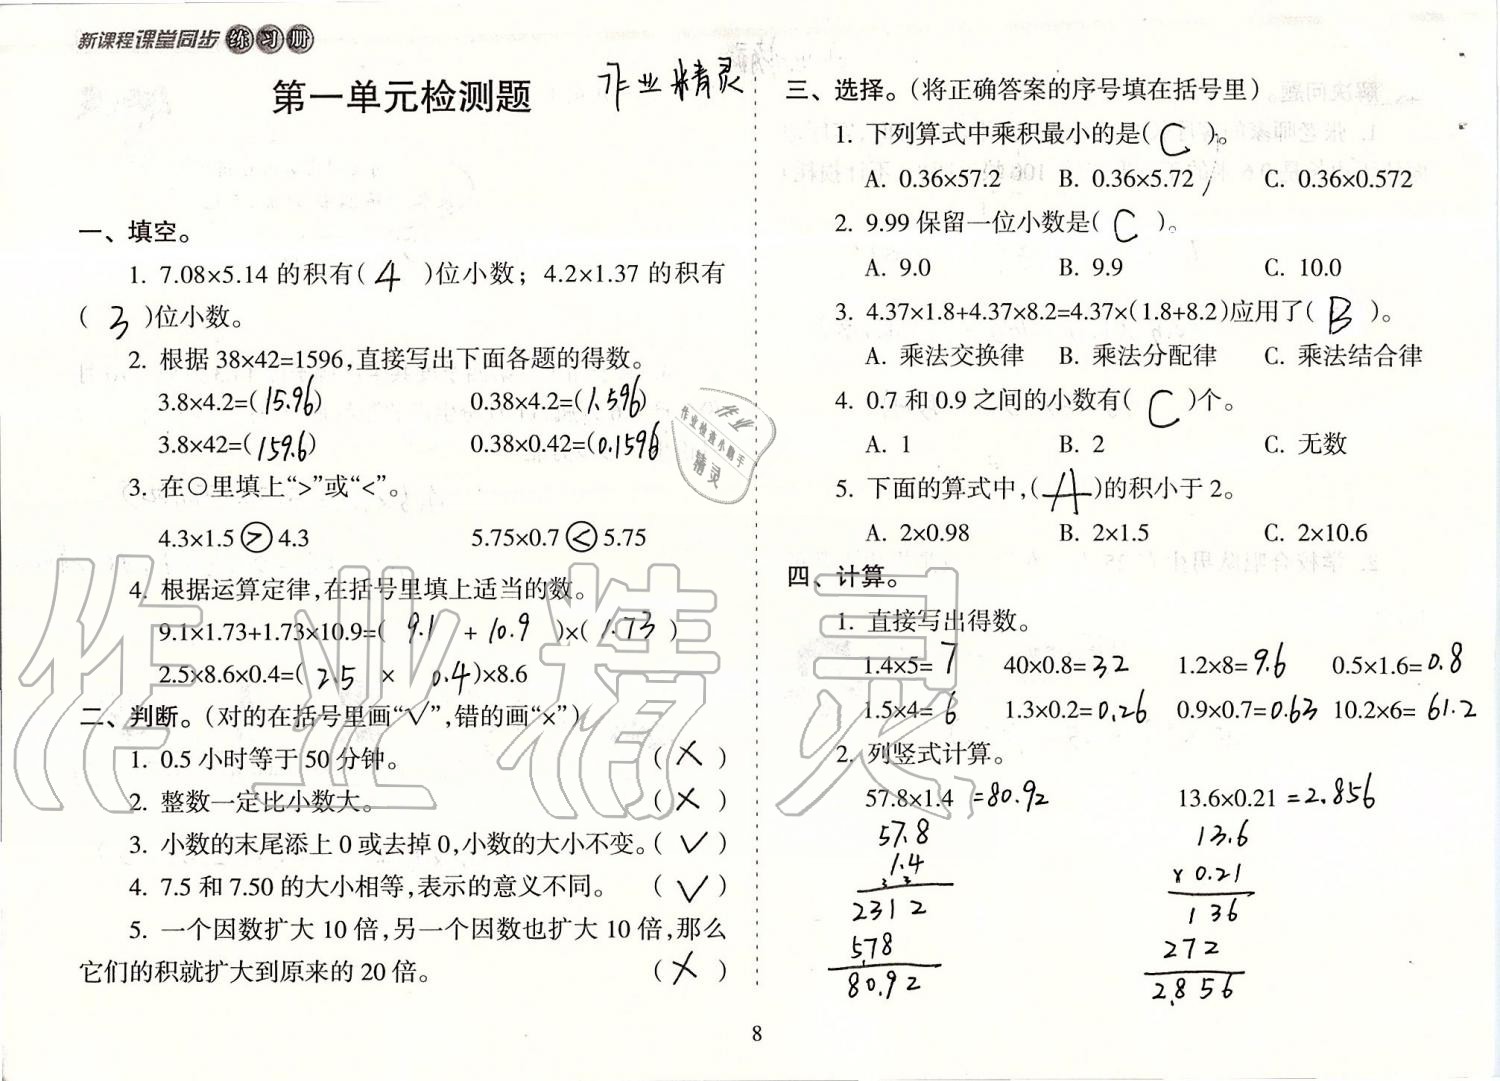 新课程课堂同步练习册
第一单元检测题
作业精灵
一、填空。
1. 7.08×5.14 的积有( 4 )位小数；4.2×1.37 的积有
( 3 )位小数。
2. 根据 38×42=1596,直接写出下面各题的得数。
3.8×4.2=(15.96) 0.38×4.2=(1.596)
3.8×42=(159.6) 0.38×0.42=(0.1596
3. 在○里填上“>”或“<”。
4.3×1.5 > 4.3 5.75×0.7 < 5.75
4. 根据运算定律,在括号里填上适当的数。
9.1×1.73+1.73×10.9=( 9.1 + 10.9 )×( 1.73 )
2.5×8.6×0.4=( 2.5 × 0.4)×8.6
二、判断。(对的在括号里画“√”,错的画“×”)
1. 0.5 小时等于 50 分钟。 ( × )
2. 整数一定比小数大。 ( × )
3. 小数的末尾添上 0 或去掉 0,小数的大小不变。( √ )
4. 7.5 和 7.50 的大小相等,表示的意义不同。 ( √ )
5. 一个因数扩大 10 倍,另一个因数也扩大 10 倍,那么
它们的积就扩大到原来的 20 倍。 ( × )
三、选择。(将正确答案的序号填在括号里)
1. 下列算式中乘积最小的是( C )。
A. 0.36×57.2 B. 0.36×5.72 C. 0.36×0.572
2. 9.99 保留一位小数是( C )。
A. 9.0 B. 9.9 C. 10.0
3. 4.37×1.8+4.37×8.2=4.37×(1.8+8.2)应用了( B )。
A. 乘法交换律 B. 乘法分配律 C. 乘法结合律
4. 0.7 和 0.9 之间的小数有( C )个。
A. 1 B. 2 C. 无数
5. 下面的算式中,( A )的积小于 2。
A. 2×0.98 B. 2×1.5 C. 2×10.6
四、计算。
1. 直接写出得数。
1.4×5= 7 40×0.8= 32 1.2×8= 9.6 0.5×1.6= 0.8
1.5×4= 6 1.3×0.2= 0.26 0.9×0.7= 0.63 10.2×6= 61.2
2. 列竖式计算。
57.8×1.4 =80.92 13.6×0.21 =2.856
57.8 13.6
1.4 × 0.21
2312 136
578 272
80.92 2.856
8
作业
作业检查小助手
精灵
作业精灵